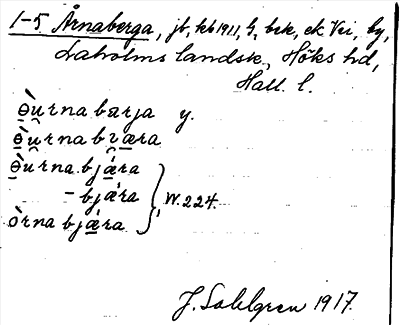 1-5 Årnaberga, jb, kb 1911, G, bek, ek Vei, by,
Laholms landsk., Höks hd,
Hall. l.
ɵ̀u̯rna bærja y.
ɵ̀u̯rna bɿæra
ɵ̀u̯rna bjǽra
- bjǽra } W. 224.
òrna bjǽra
J. Sahlgren 1917.